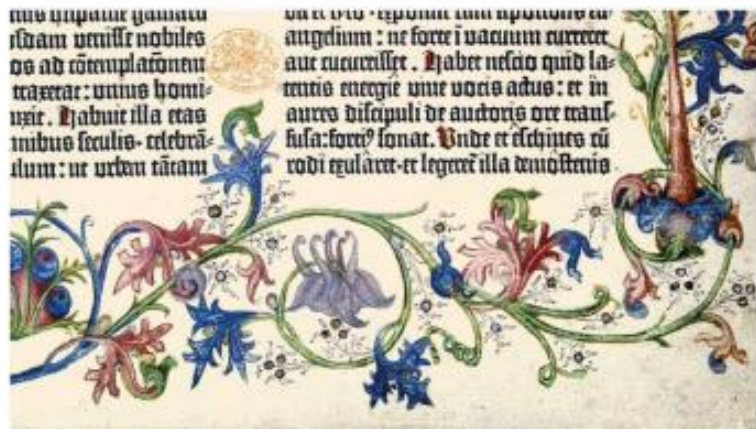 isdam venisse nobiles
os ad cōtemplacōnem
traxerat: unius homi=
uxit. Habuit illa etas
nnibus seculis· celebrā=
ulum: ut urbem tātam
angelium: ne forte ī vacuum curreret
aut cucurrisset. Habet nescio quid la=
tentis energie vive vocis actus: et in
aures discipuli de auctoris ore trans=
fusa: forti⁹ sonat. Unde et eschines cū
rodi exularet· et legeret̄ illa demostenis